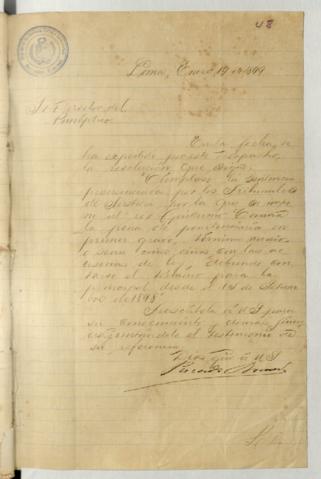 48
Lima, Enero 19 de 1899
Sr Director del
Panóptico
En la fecha, se
ha expedido por este Despacho
la resolución que sigue:
"Cúmplase la sentencia
pronunciada por los Tribunales
de Justicia por la que se impone
al reo Guillermo
la pena de penitenciaría en
primer grado, término medio,
o sean cinco años con las ac
cesorias de ley, debiendo con
tarse el término para la
principal desde el 14 de Setiem
bre de 1898"
Trascríbola á US para
su conocimiento y demás fines,
el testimonio de
su referencia.
Dios gue á US
Ricardo